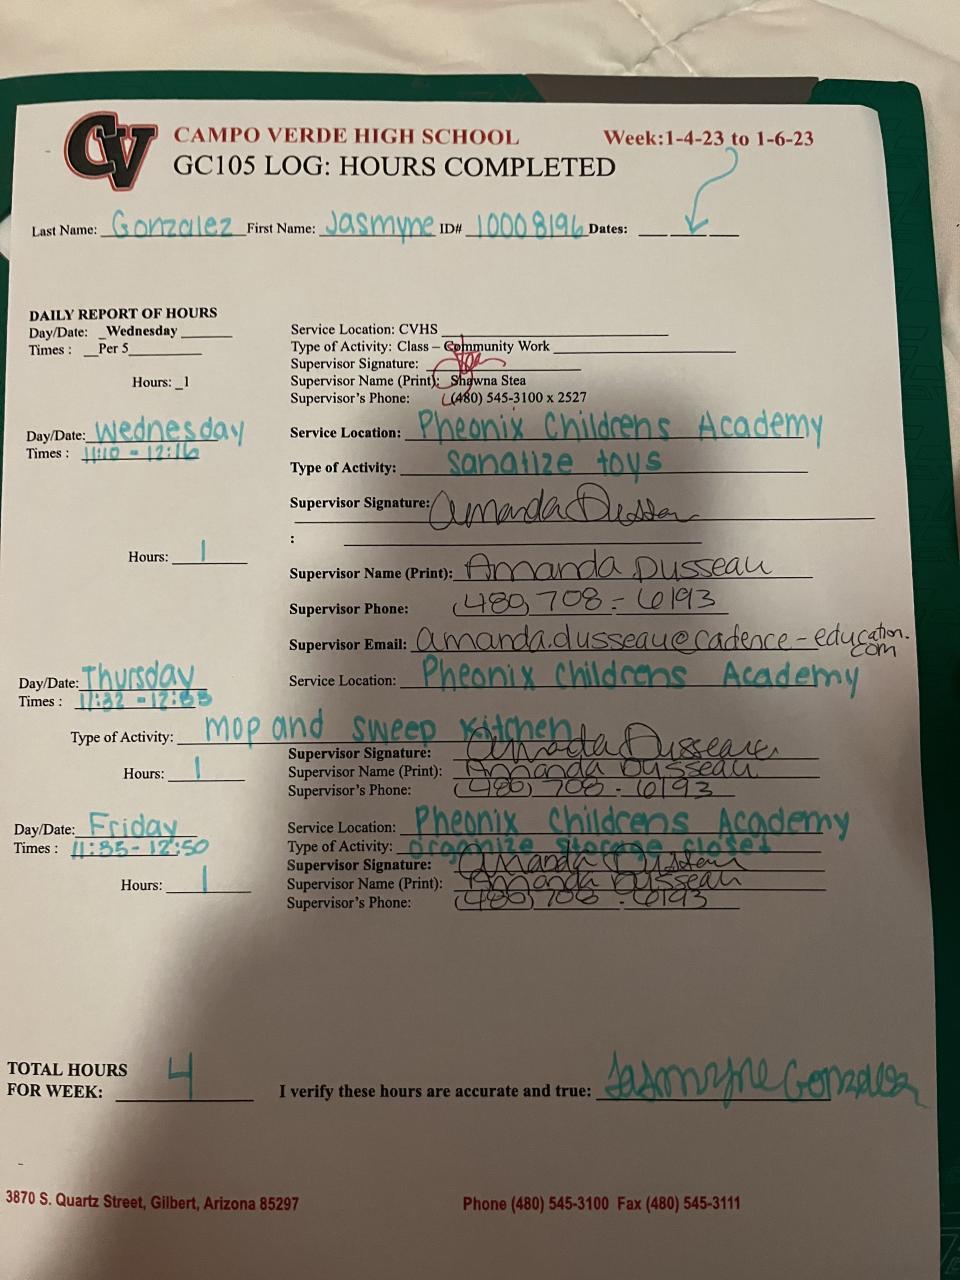 CV CAMPO VERDE HIGH SCHOOL Week:1-4-23 to 1-6-23
GC105 LOG: HOURS COMPLETED
Last Name: Gonzalez First Name: Jasmyne ID# 10008196 Dates:
DAILY REPORT OF HOURS
Day/Date: Wednesday
Times : Per 5
Hours: 1
Service Location: CVHS
Type of Activity: Class – Community Work
Supervisor Signature:
Supervisor Name (Print): Shawna Stea
Supervisor's Phone: (480) 545-3100 x 2527
Day/Date: Wednesday
Times : 11:10 - 12:16
Hours: 1
Service Location: Pheonix Childrens Academy
Type of Activity: Sanatize toys
Supervisor Signature: Amanda Dusseau
:
Supervisor Name (Print): Amanda Dusseau
Supervisor Phone: (480) 708-6193
Supervisor Email: amanda.dusseau@cadence-education.com
Day/Date: Thursday
Times : 11:32 -
Service Location: Pheonix Childrens Academy
Type of Activity: mop and sweep kitchen
Hours: 1
Supervisor Signature: Amanda Dusseau
Supervisor Name (Print): Amanda Dusseau
Supervisor's Phone: (480) 708-6193
Day/Date: Friday
Times : 11:35- 12:50
Hours: 1
Service Location: Pheonix Childrens Academy
Type of Activity: organize storage closet
Supervisor Signature: Amanda Dusseau
Supervisor Name (Print): Amanda Dusseau
Supervisor's Phone: (480) 708-6193
TOTAL HOURS
FOR WEEK: 4 I verify these hours are accurate and true: Jasmyne Gonzalez
3870 S. Quartz Street, Gilbert, Arizona 85297 Phone (480) 545-3100 Fax (480) 545-3111